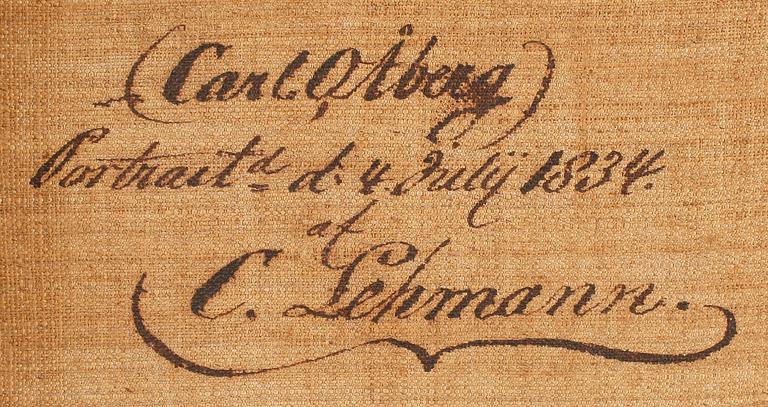 (Carl O. Åberg)
Portrait'd d. 4. Julij 1834.
af
C. Lehmann.